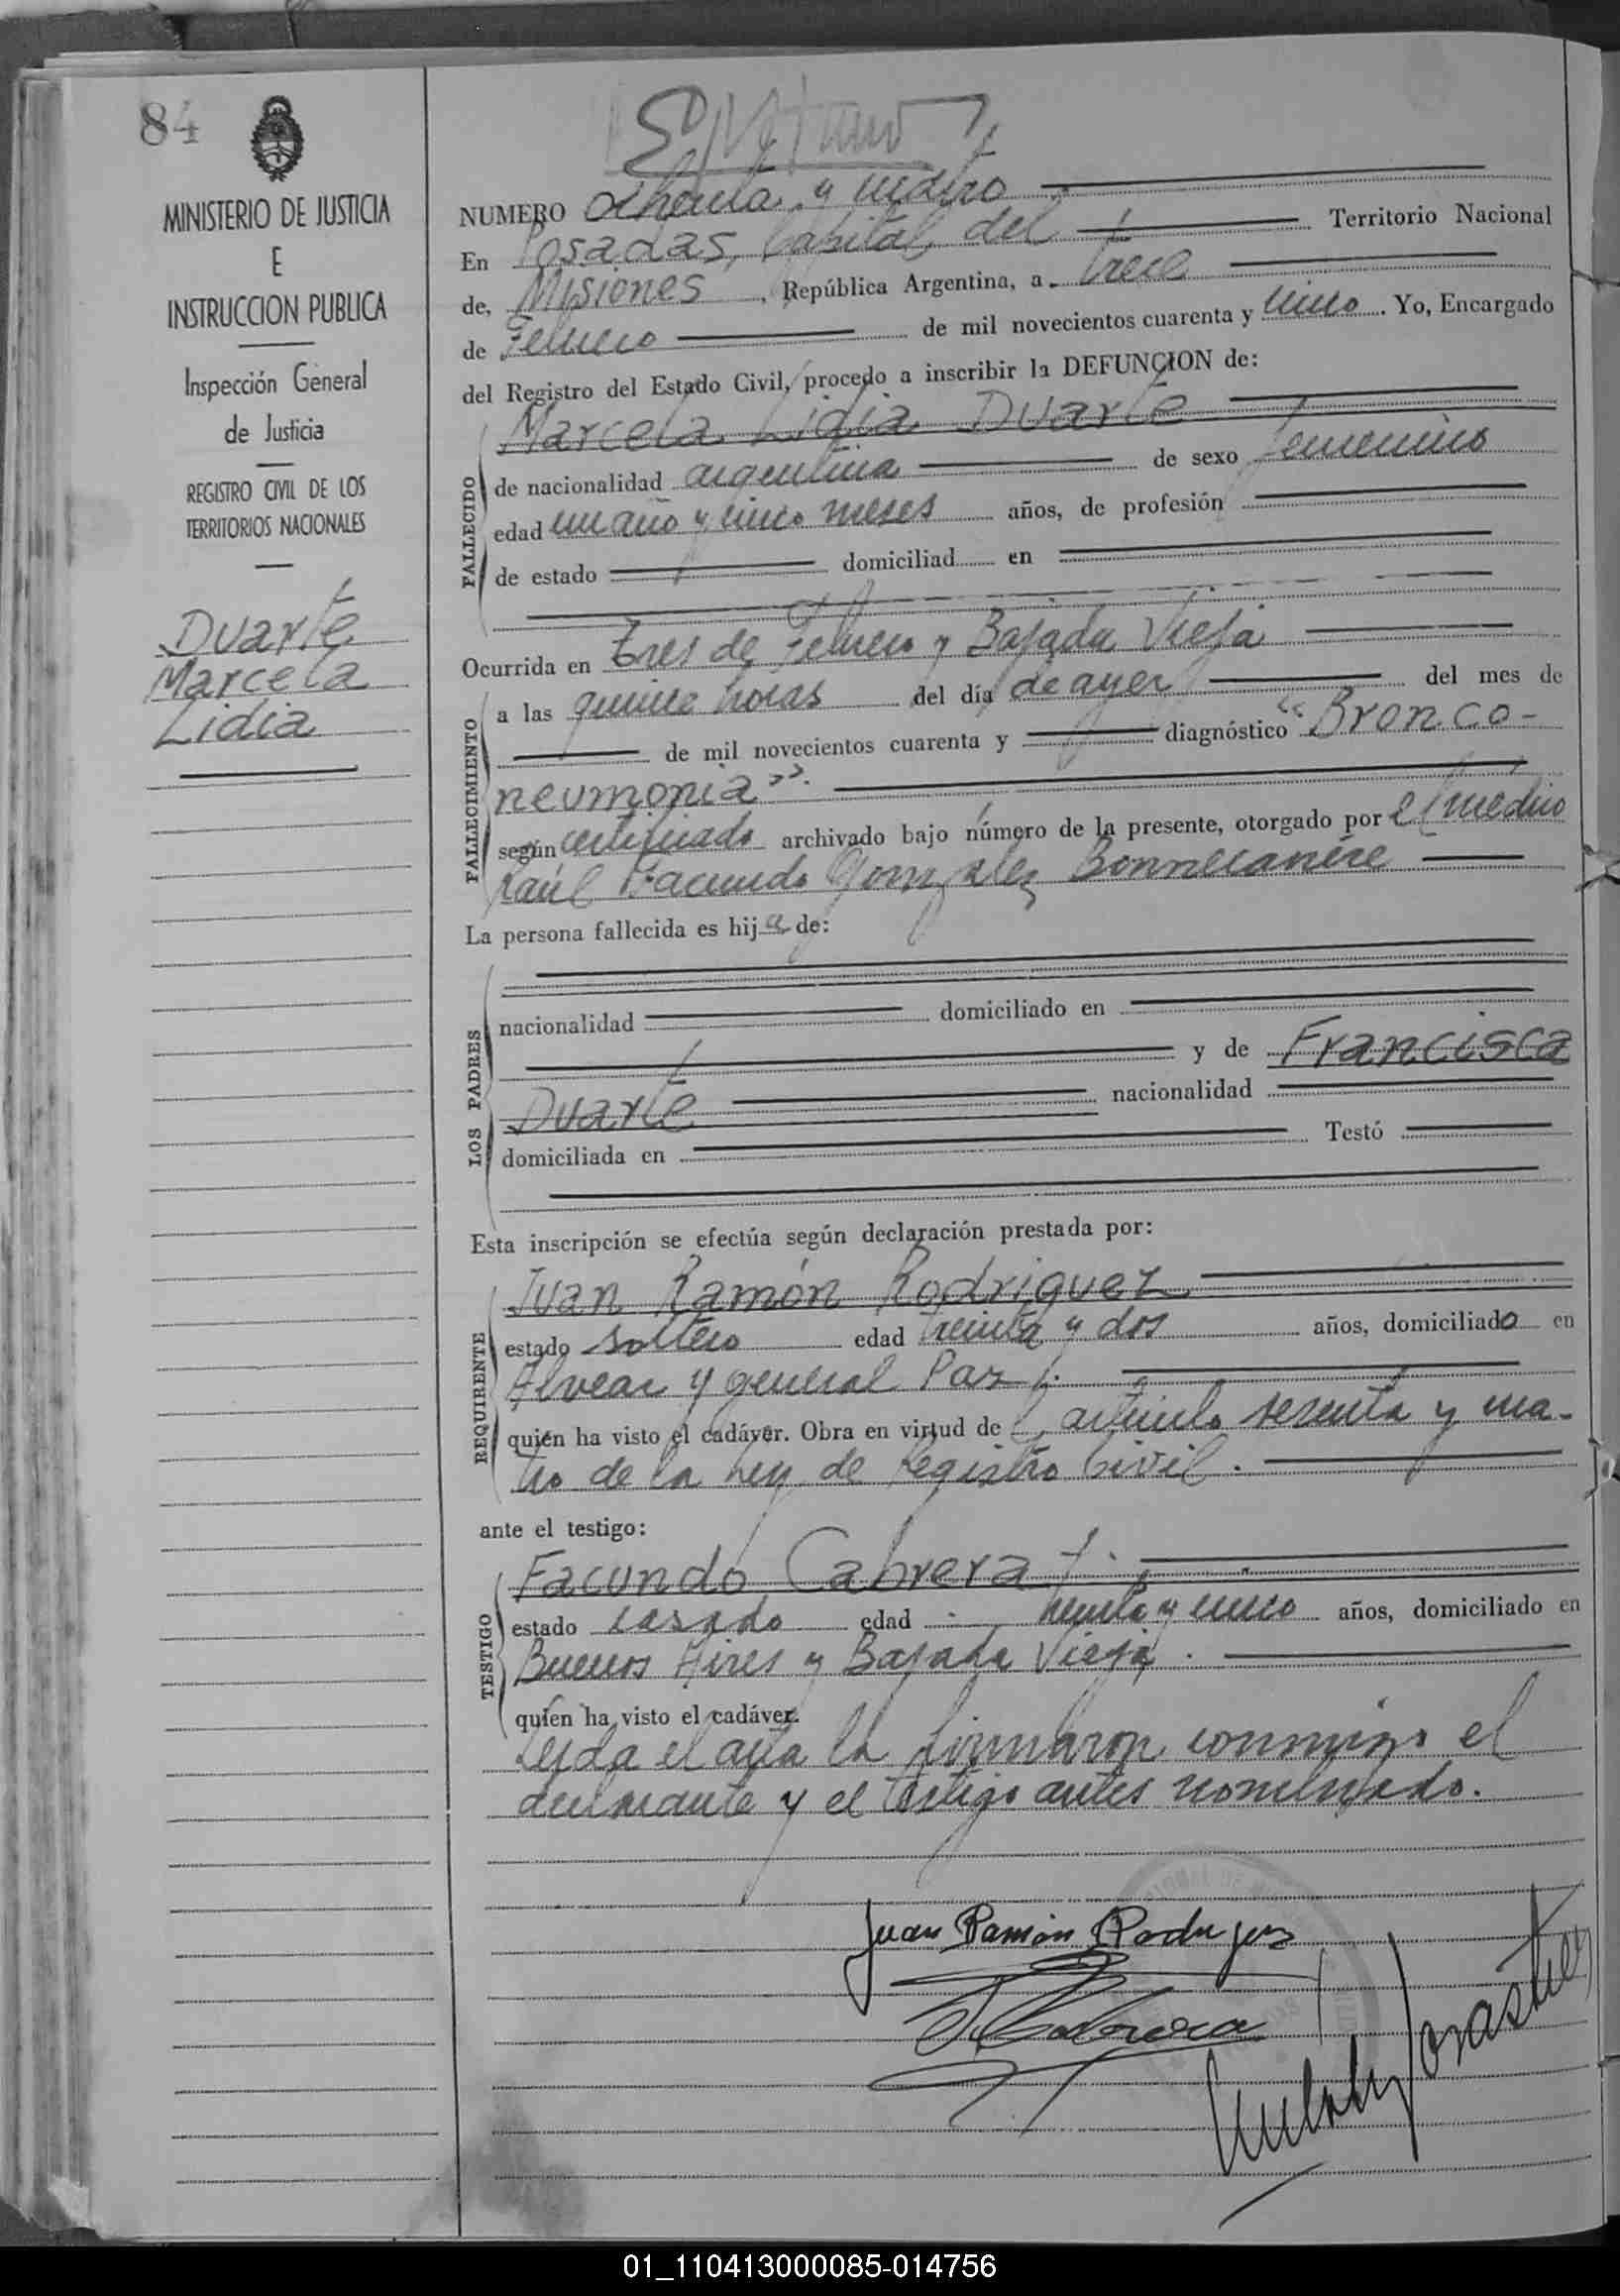 84
MINISTERIO DE JUSTICIA
E
INSTRUCCION PUBLICA
Inspección General
de Justicia
REGISTRO CIVIL DE LOS
TERRITORIOS NACIONALES
Duarte
Marcela
Lidia
NUMERO Ochenta y cuatro
En Posadas, Capital del Territorio Nacional
de, Misiones, República Argentina, a trece
de Febrero de mil novecientos cuarenta y cinco. Yo, Encargado
del Registro del Estado Civil, procedo a inscribir la DEFUNCION de:
FALLECIDO
Marcela Lidia Duarte
de nacionalidad argentina de sexo femenino
edad un año y cinco meses años, de profesión
de estado domiciliad en
Ocurrida en tres de Febrero y Bajada Vieja
FALLECIMIENTO
a las quince horas del día de ayer del mes de
de mil novecientos cuarenta y diagnóstico "Bronco-
neumonia".
según certificado archivado bajo número de la presente, otorgado por el médico
Raúl Facundo Gonzalez Bonnecarrere
La persona fallecida es hija de:
LOS PADRES
nacionalidad domiciliado en
y de Francisca
Duarte nacionalidad
domiciliada en Testó
Esta inscripción se efectúa según declaración prestada por:
REQUIRENTE
Juan Ramón Rodriguez
estado soltero edad treinta y dos años, domiciliado en
Alvear y general Paz
quién ha visto el cadáver. Obra en virtud de artículo sesenta y cua-
tro de la Ley de Registro Civil.
ante el testigo:
TESTIGO
Facundo Cabrera
estado casado edad treinta y cinco años, domiciliado en
Buenos Aires y Bajada Vieja.
quien ha visto el cadáver.
Leida el acta la firmaron conmigo el
declarante y el testigo antes nombrado.
Juan Ramón Rodriguez
F. Cabrera
01_110413000085-014756